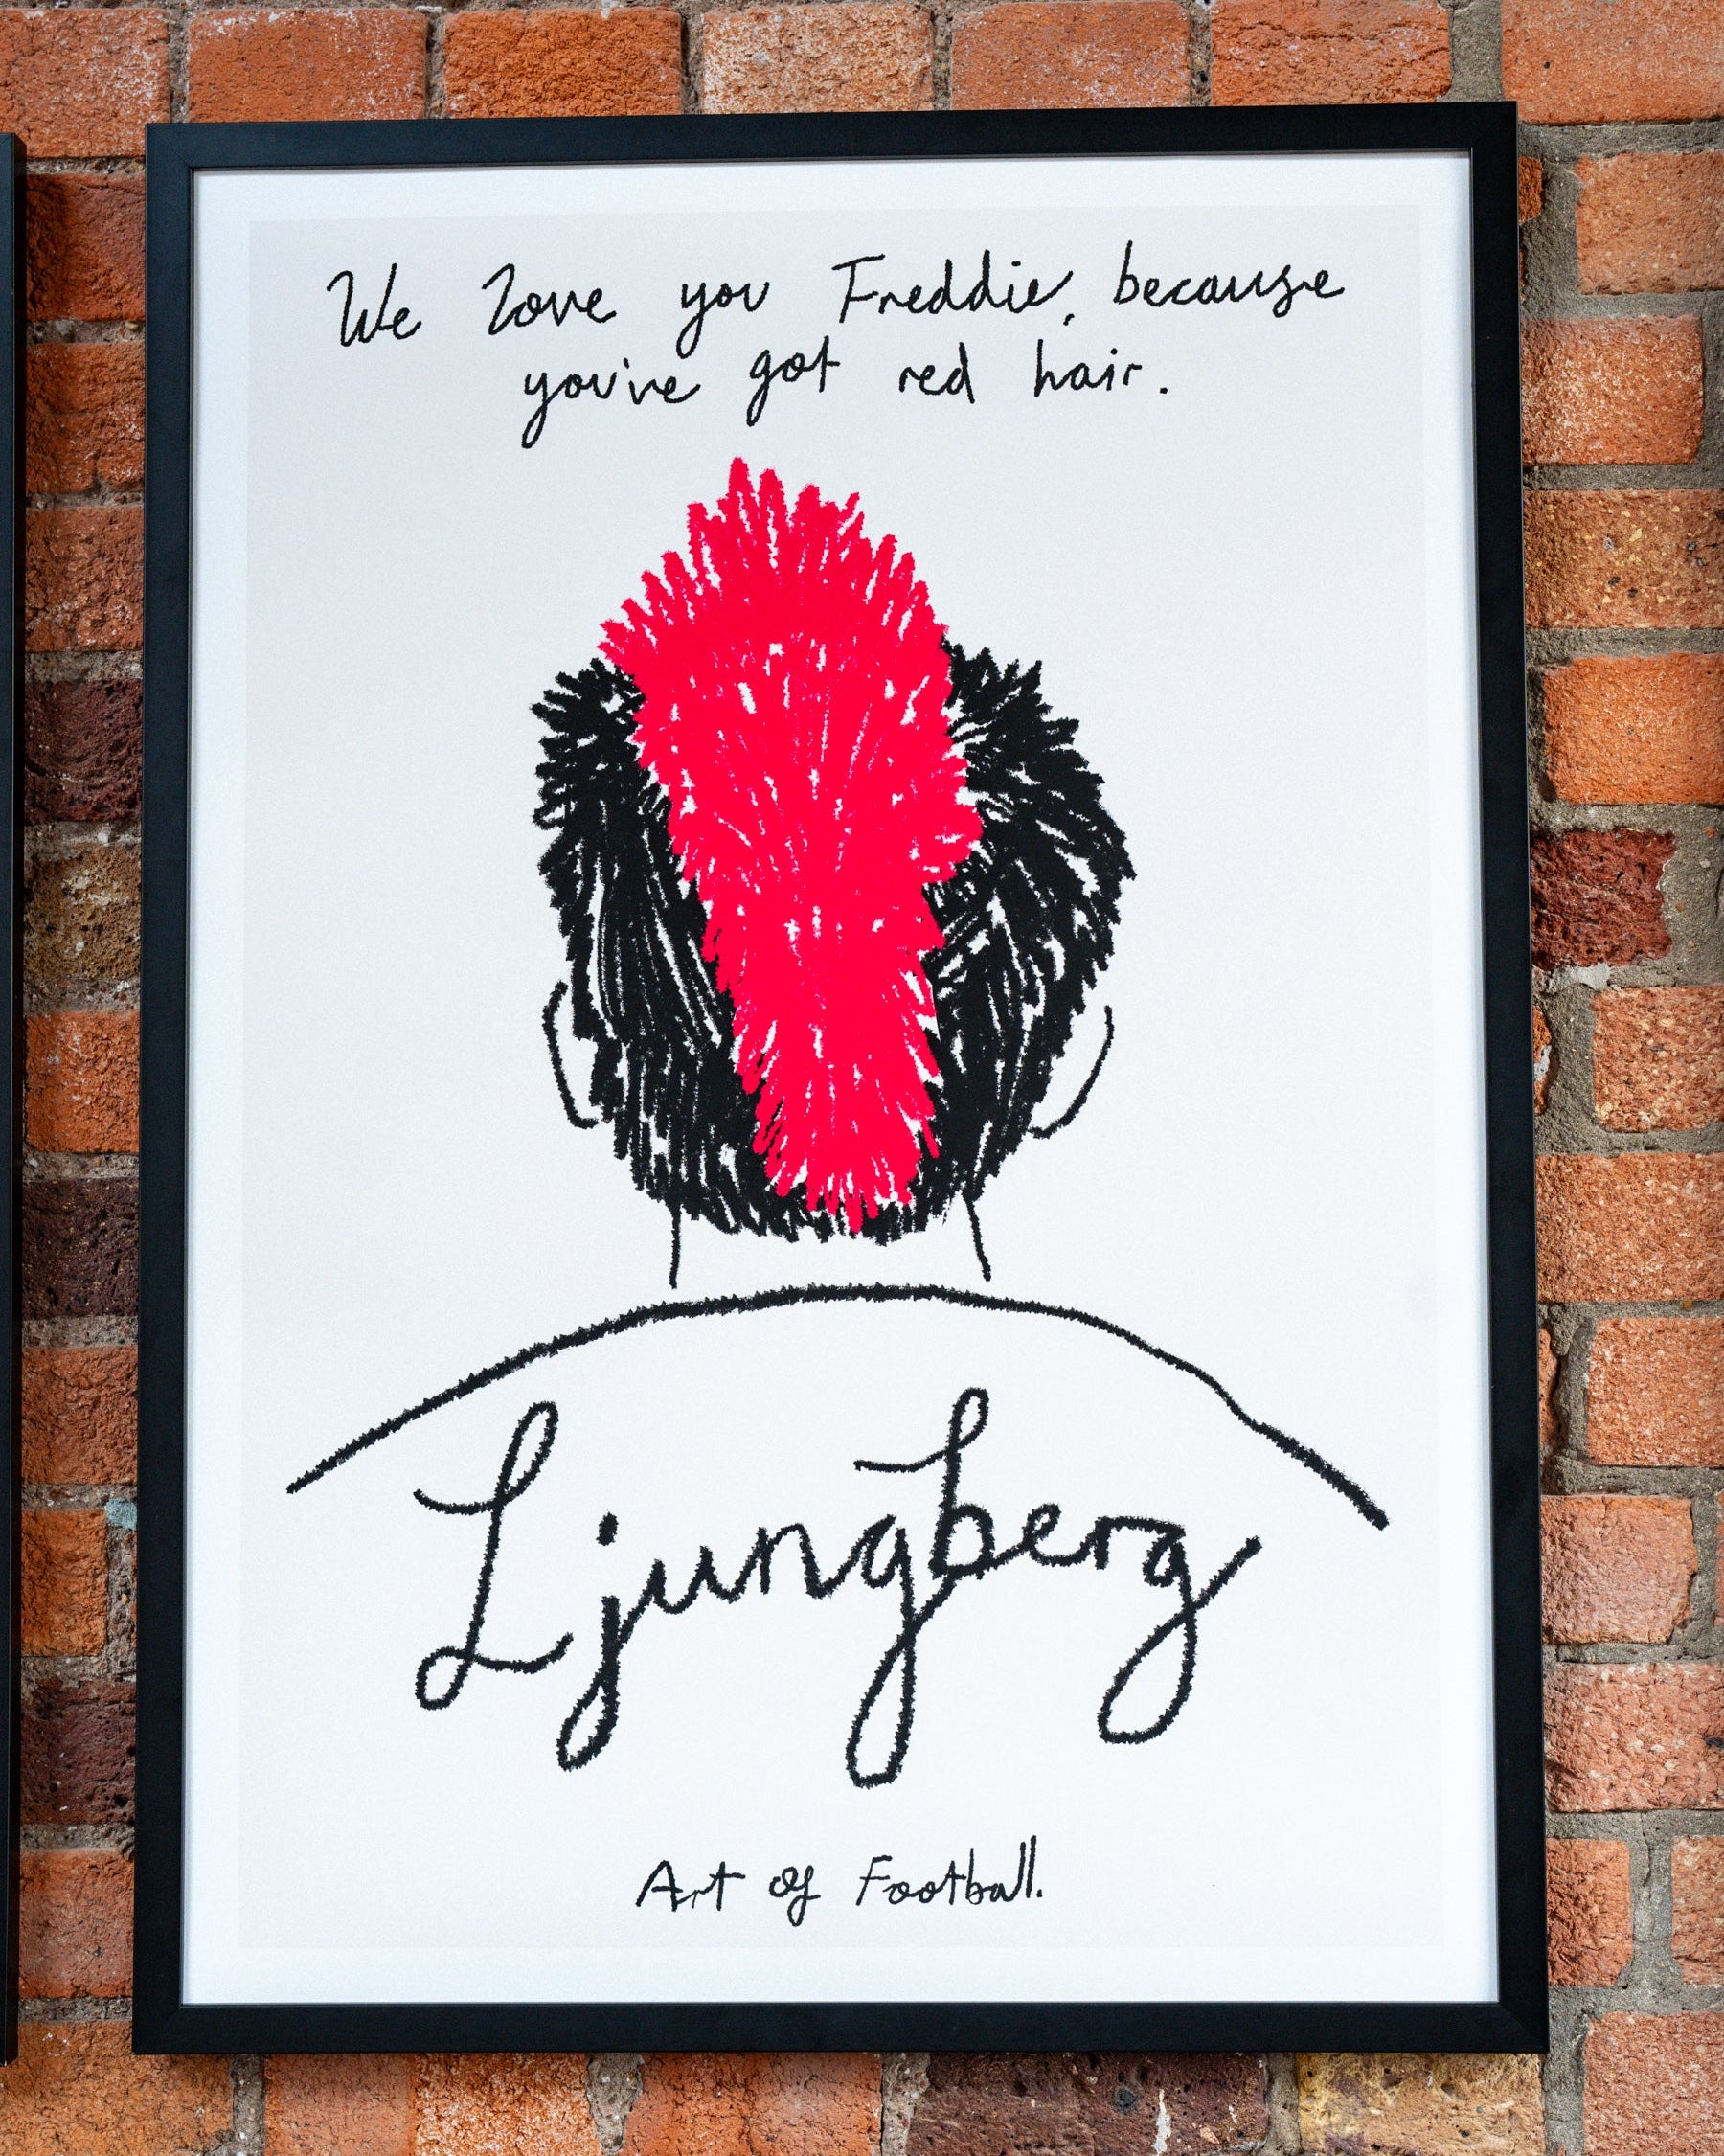 We love you Freddie, because
you've got red hair.
Ljungberg
Art of Football.